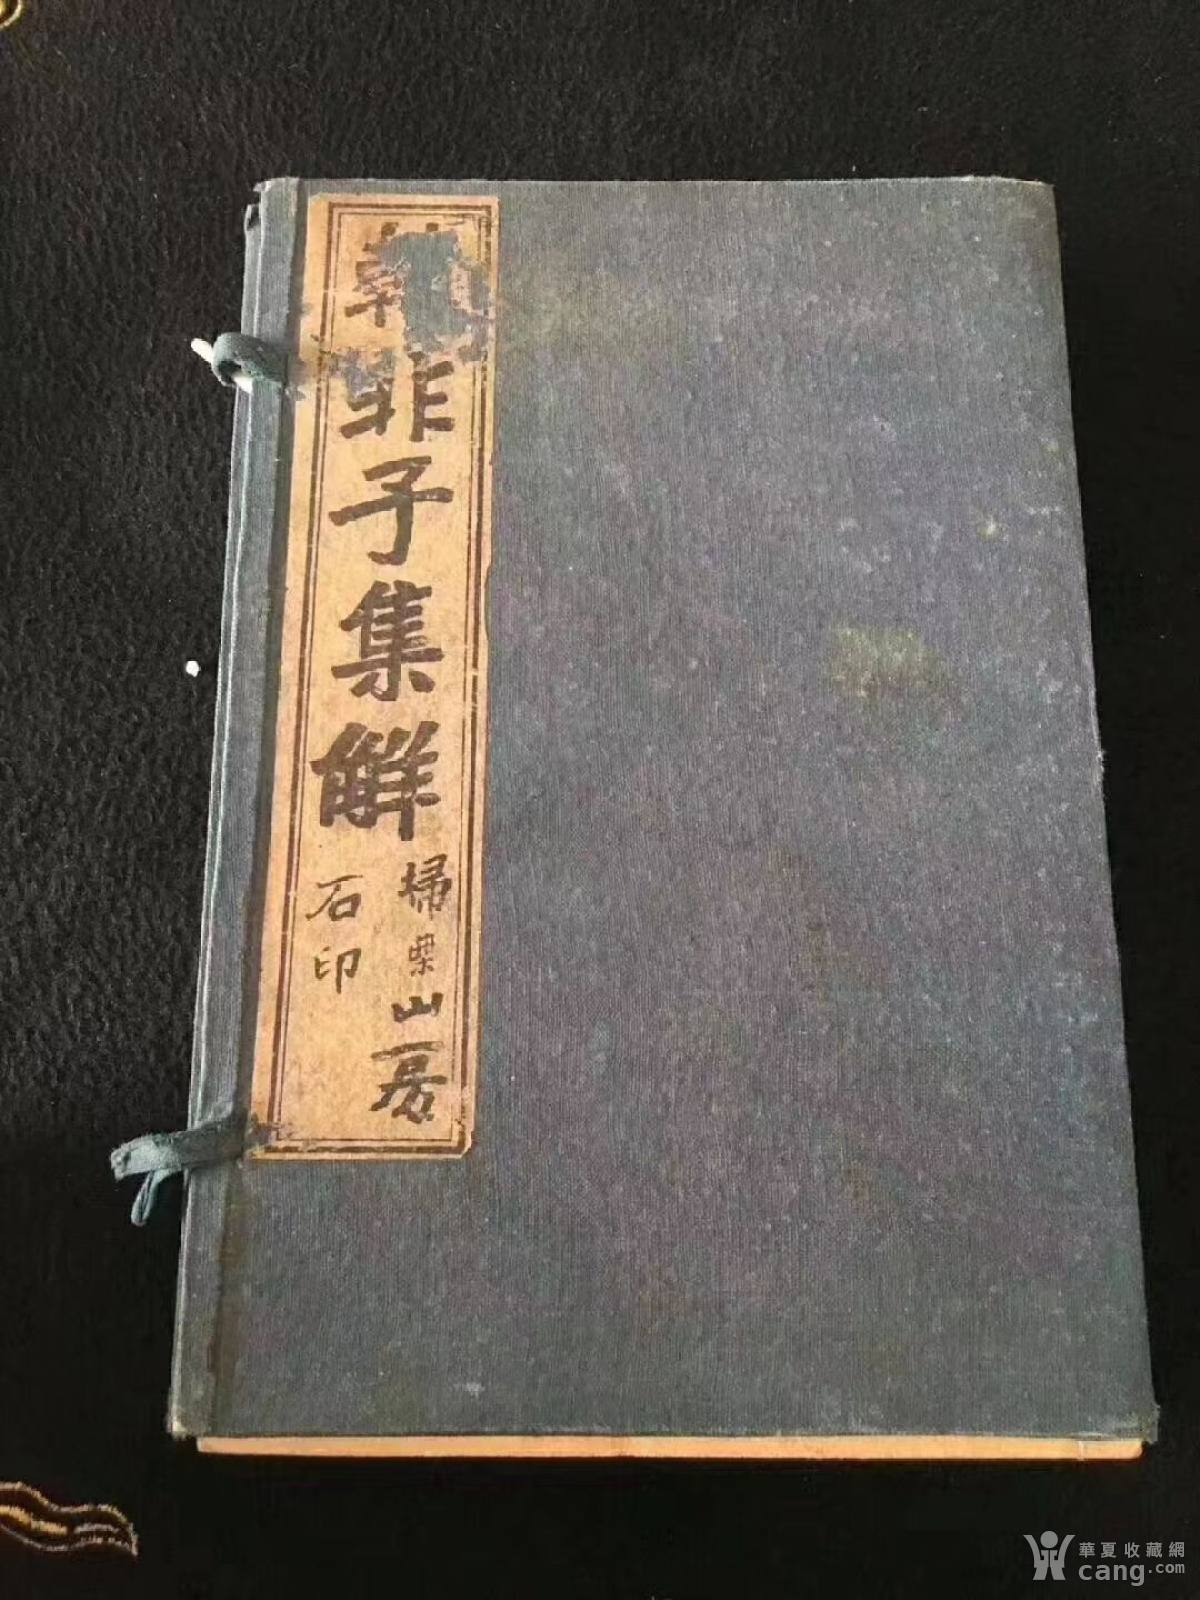 韓非子集解
掃葉山房
石印
華夏收藏網
cang.com